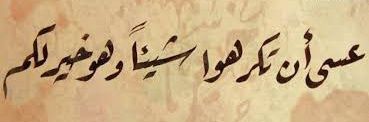 عسى أن تكرهوا شيئاً وهو خير لكم